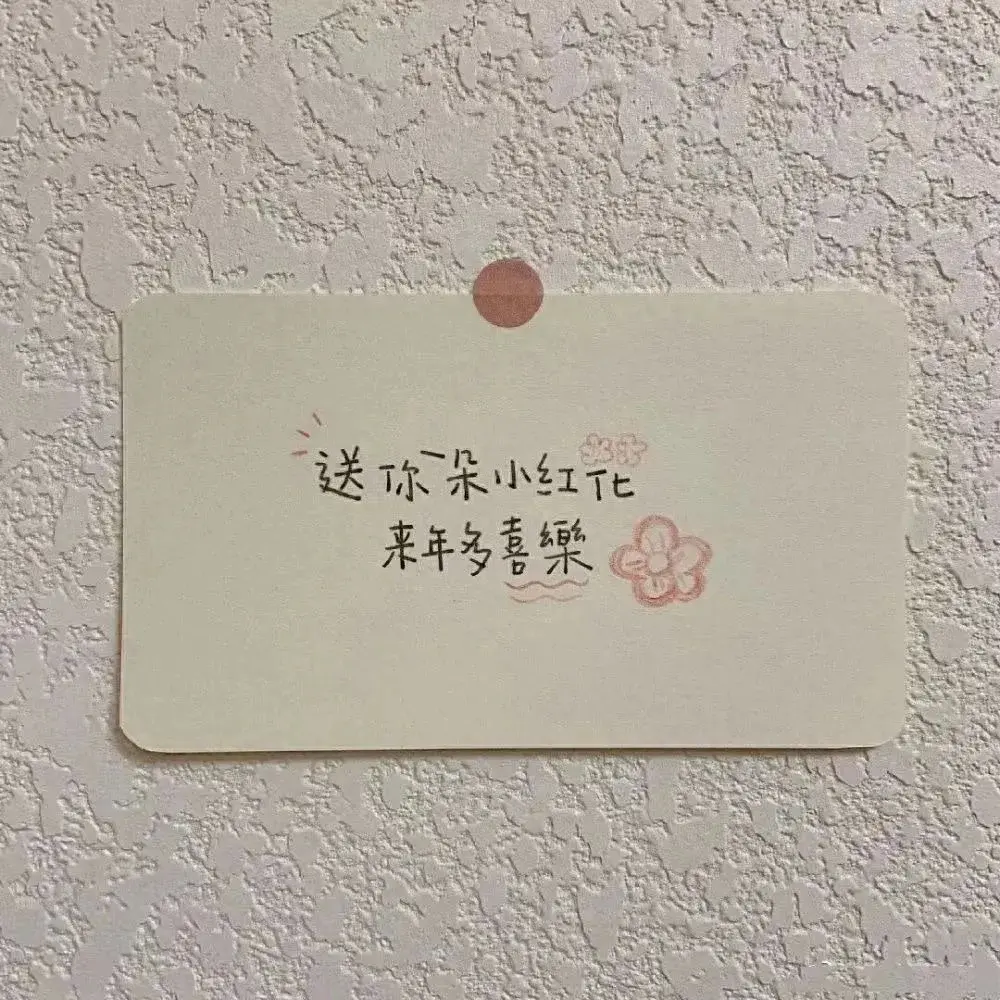 送你一朵小红花
来年多喜樂